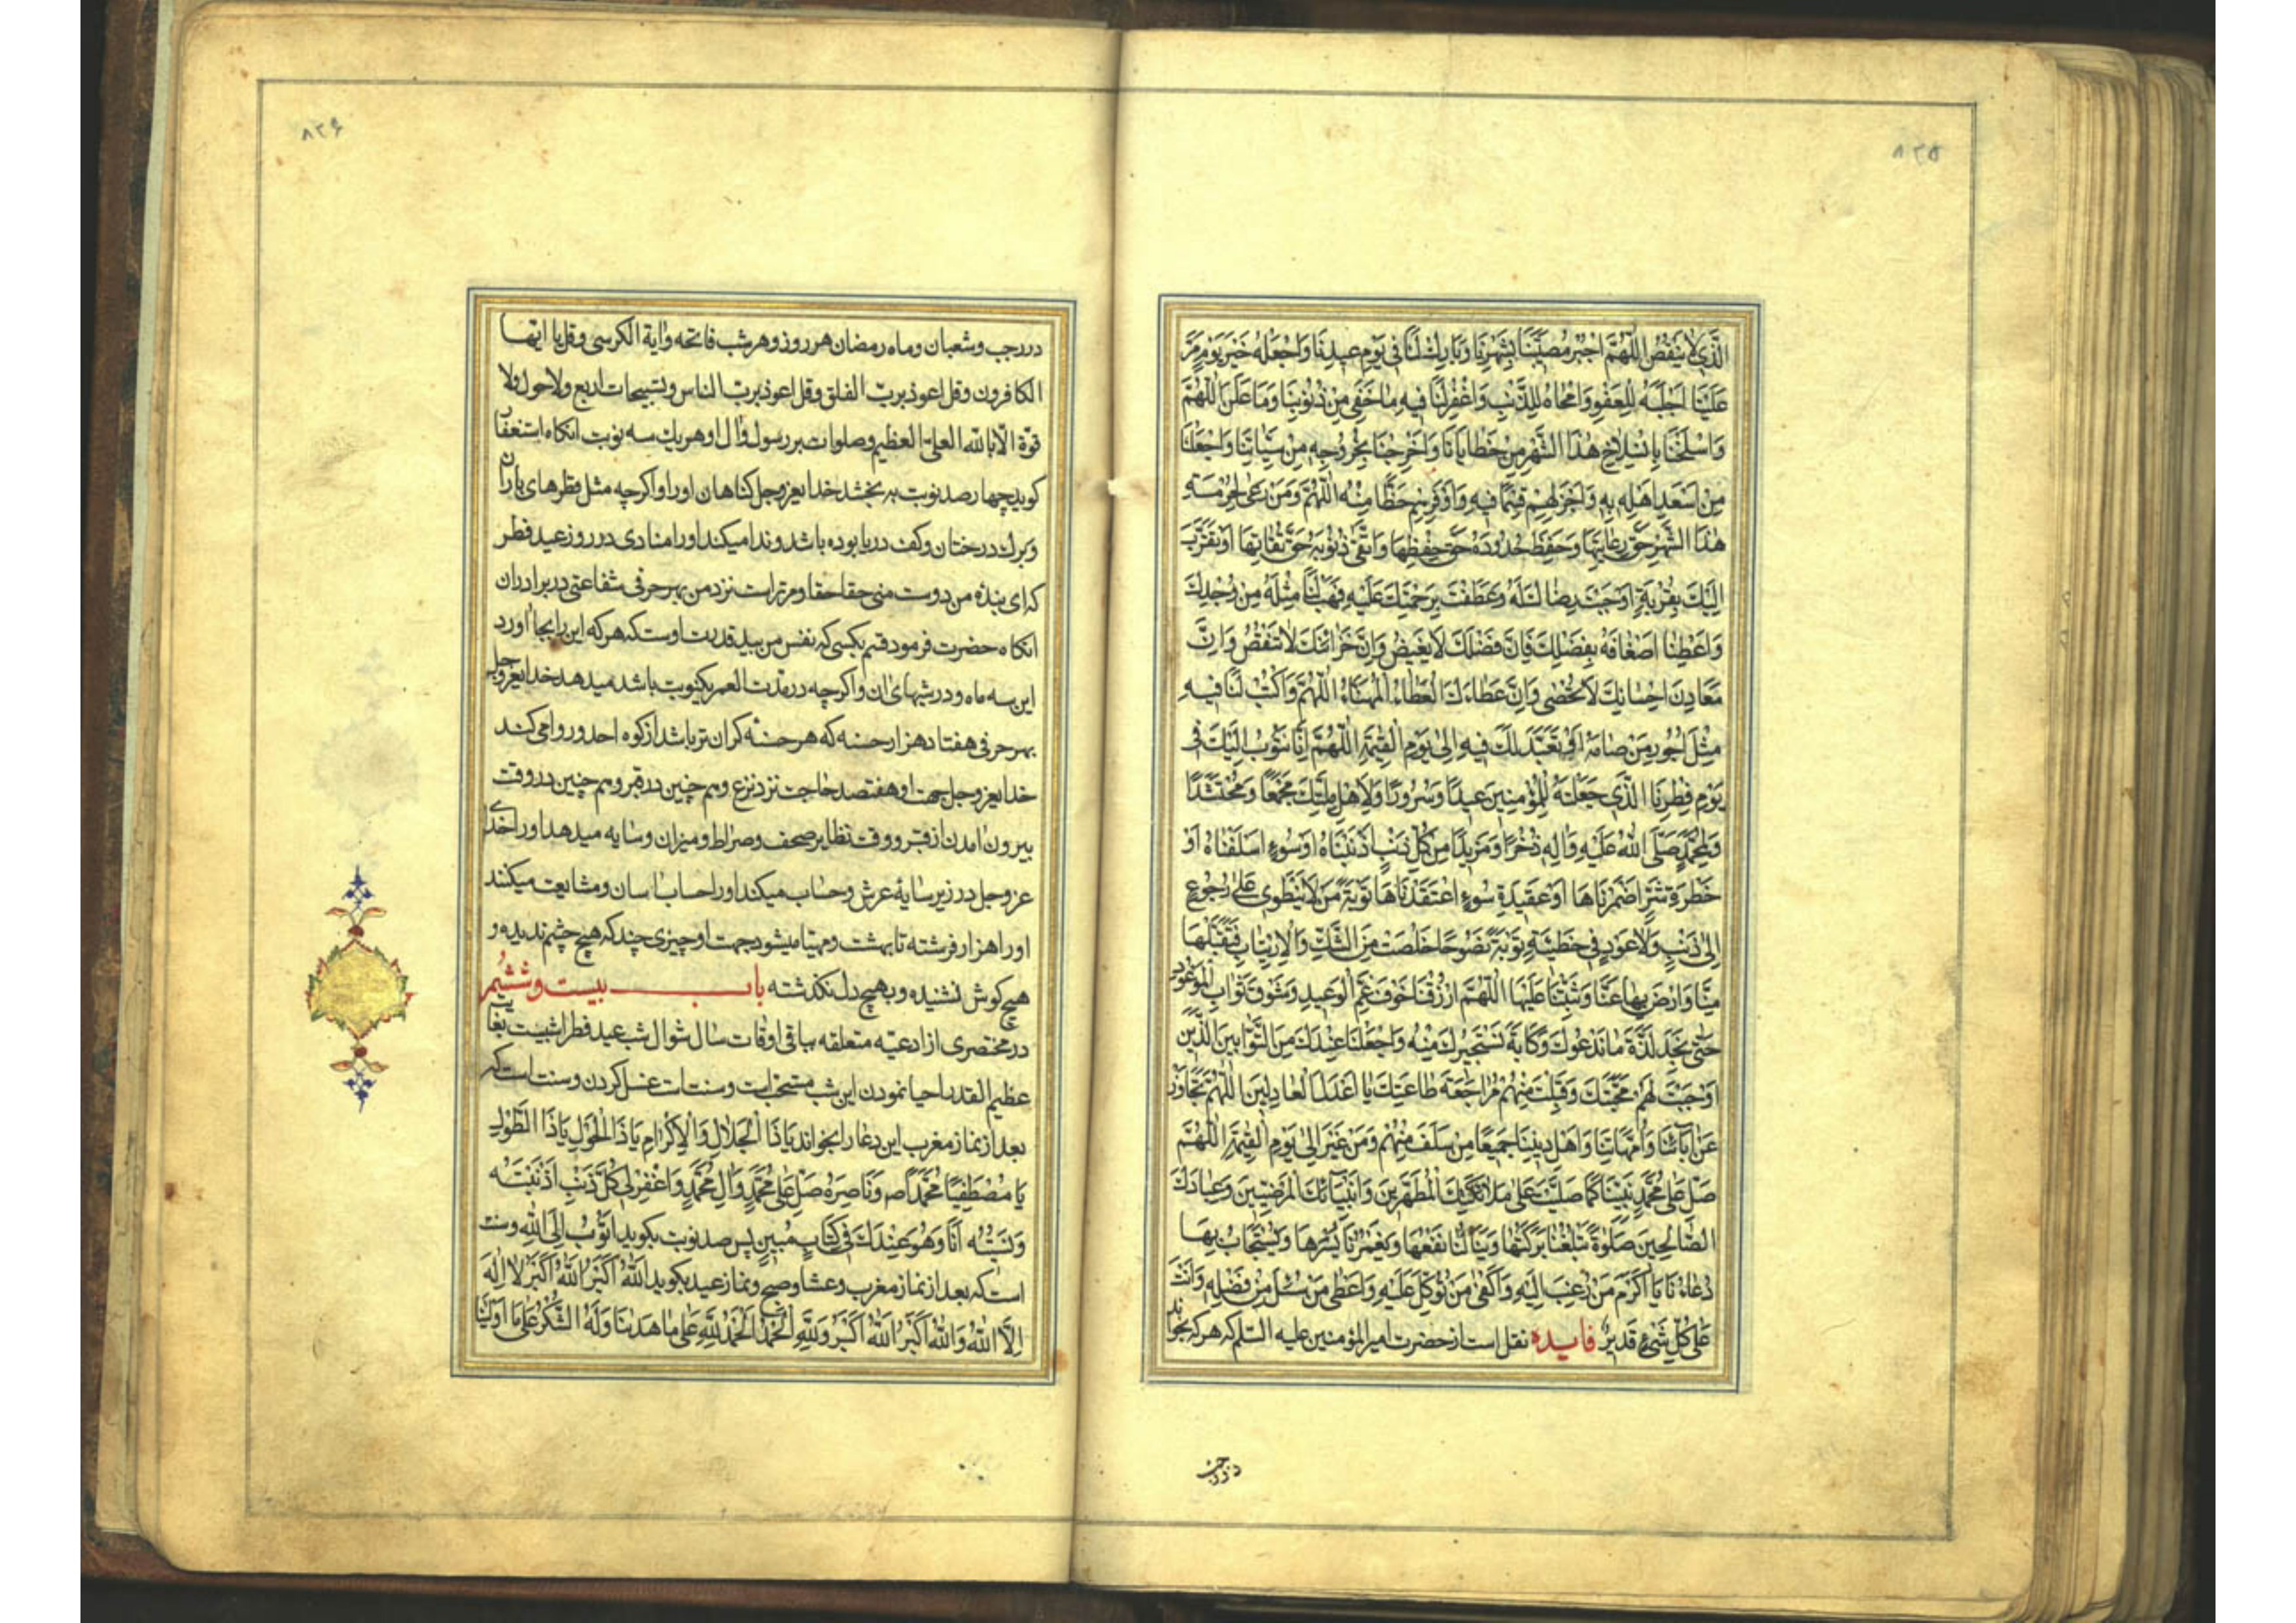 ۸۲۵
الَّذِي لَا يَنْقُصُ اللّٰهُمَّ اجْبُرْ مُصِيبَتَنَا بِشَهْرِنَا وَبَارِكْ لَنَا فِي يَوْمِ عِيدِنَا وَاجْعَلْهُ خَيْرَ يَوْمٍ مَرَّ
عَلَيْنَا اَجْلَبَهُ لِلْعَفْوِ وَامْحَاهُ لِلذَّنْبِ وَاغْفِرْ لَنَا فِيهِ مَا خَفِيَ مِنْ ذُنُوبِنَا وَمَا عَلَنَ اللّٰهُمَّ
وَاسْلَخْنَا بِانْسِلَاخِ هٰذَا الشَّهْرِ مِنْ خَطَايَانَا وَاَخْرِجْنَا بِخُرُوجِهِ مِنْ سَيِّئَاتِنَا وَاجْعَلْنَا
مِنْ اَسْعَدِ اَهْلِهِ بِهِ وَاَجْزَلِهِمْ قِسَمًا فِيهِ وَاَوْفَرِهِمْ حَظًّا مِنْهُ اللّٰهُمَّ وَمَنْ رَعٰى حُرْمَةِ
هٰذَا الشَّهْرِ حَقَّ رِعَايَتِهَا وَحَفِظَ حُدُودَهُ حَقَّ حِفْظِهَا وَاتَّقٰى ذُنُوبَهُ حَقَّ تُقَاتِهَا اَوْ تَقَرَّبَ
اِلَيْكَ بِقُرْبَةٍ اَوْجَبَتْ رِضَاكَ لَهُ وَعَطَفَتْ بِرَحْمَتِكَ عَلَيْهِ فَهَبْ لَنَا مِثْلَهُ مِنْ وُجْدِكَ
وَاَعْطِنَا اَضْعَافَهُ بِفَضْلِكَ فَاِنَّ فَضْلَكَ لَا يَغِيضُ وَاِنَّ خَزَائِنَكَ لَا تَنْقُصُ وَاِنَّ
مَعَادِنَ اِحْسَانِكَ لَا تُحْصٰى وَاِنَّ عَطَاءَكَ الْعَطَاءُ الْمُهَنَّاءُ اللّٰهُمَّ وَاكْتُبْ لَنَا فِيهِ
مِثْلَ اُجُورِ مَنْ صَامَهُ اَوْ تَعَبَّدَ لَكَ فِيهِ اِلٰى يَوْمِ الْقِيٰمَةِ اللّٰهُمَّ اِنَّا نَتُوبُ اِلَيْكَ فِي
يَوْمِ فِطْرِنَا الَّذِي جَعَلْتَهُ لِلْمُؤْمِنِينَ عِيدًا وَسُرُورًا وَلِاَهْلِ مِلَّتِكَ مَجْمَعًا وَمُحْتَشَدًا
وَلِمُحَمَّدٍ صَلَّى اللّٰهُ عَلَيْهِ وَاٰلِهِ ذُخْرًا وَمَزِيدًا مِنْ كُلِّ ذَنْبٍ اَذْنَبْنَاهُ اَوْ سُوءٍ اَسْلَفْنَاهُ اَوْ
خَطْرَةِ شَرٍّ اَضْمَرْنَاهَا اَوْ عَقِيدَةِ سُوءٍ اعْتَقَدْنَاهَا تَوْبَةَ مَنْ لَا يَنْطَوِي عَلٰى رُجُوعٍ
اِلٰى ذَنْبٍ وَلَا عَوْدٍ فِي خَطِيئَةٍ تَوْبَةً نَصُوحًا خَلَصَتْ مِنَ الشَّكِّ وَالْاِرْتِيَابِ فَتَقَبَّلْهَا
مِنَّا وَارْضَ بِهَا عَنَّا وَثَبِّتْنَا عَلَيْهَا اللّٰهُمَّ ارْزُقْنَا خَوْفَ غَمِّ الْوَعِيدِ وَشَوْقَ ثَوَابِ الْمَوْعُودِ
حَتّٰى نَجِدَ لَذَّةَ مَا نَدْعُوكَ وَكَابَةَ نَسْتَجِيرُكَ مِنْهُ وَاجْعَلْنَا عِنْدَكَ مِنَ التَّوَّابِينَ الَّذِينَ
اَوْجَبْتَ لَهُمْ مَحَبَّتَكَ وَقَبِلْتَ مِنْهُمْ مُرَاجَعَةَ طَاعَتِكَ يَا اَعْدَلَ الْعَادِلِينَ اللّٰهُمَّ تَجَاوَزْ
عَنْ اٰبَائِنَا وَاُمَّهَاتِنَا وَاَهْلِ دِينِنَا جَمِيعًا مَنْ سَلَفَ مِنْهُمْ وَمَنْ غَبَرَ اِلٰى يَوْمِ الْقِيٰمَةِ اللّٰهُمَّ
صَلِّ عَلٰى مُحَمَّدٍ نَبِيِّنَا كَمَا صَلَّيْتَ عَلٰى مَلَائِكَتِكَ الْمُطَهَّرِينَ وَاَنْبِيَائِكَ الْمَرْضِيِّينَ وَعِبَادِكَ
الصَّالِحِينَ صَلٰوةً تَبْلُغُنَا بَرَكَتُهَا وَيَنَالُنَا نَفْعُهَا وَيَغْمُرُنَا يُسْرُهَا وَيُسْتَجَابُ بِهَا
دُعَاءُنَا يَا اَكْرَمَ مَنْ رُغِبَ اِلَيْهِ وَاَكْفٰى مَنْ تُوُكِّلَ عَلَيْهِ وَاَعْطٰى مَنْ سُئِلَ مِنْ فَضْلِهِ وَاَنْتَ
عَلٰى كُلِّ شَيْءٍ قَدِيرٌ فایده نقل است از حضرت امیر المؤمنین علیه السّلم که هر که بخواند
در رجب
۸۲۶
در رجب و شعبان و ماه رمضان هر روز و هر شب فاتحه و اٰیة الکرسی و قل یا ایها
الکافرون و قل اعوذ بربّ الفلق و قل اعوذ بربّ الناس و تسبیحات اربع و لا حول و لا
قوّة الّا بالله العلیّ العظیم و صلوات بر رسول و اٰل او هر یك سه نوبت انکاه استغفار
کوید چهار صد نوبت به بخشد خدایعزوجل کناهان اورا و اکرچه مثل قطرهای باران
و برك درختان و کف دریا بوده باشد و ندا میکند اورا منادی در روز عید فطر
که ای بندهٔ من دوست منی حقا حقا و مرتراست نزد من بهر حرفی شفاعتی در برادران
انکاه حضرت فرمود قسم بکسی که نفس من بید قدرت اوست که هر که این را بجا اورد
این سه ماه و در شبهای ان و اکرچه در مدّت العمر یکنوبت باشد میدهد خدایعزوجل
بهر حرفی هفتاد هزار حسنه که هر حسنه کران تر باشد از کوه احد و روا میکند
خدایعزوجل جهت او هفتصد حاجت نزد نزع و هم چنین در قبر و هم چنین در وقت
بیرون امدن از قبر و وقت تظایر صحف و صراط و میزان و سایه میدهد اورا خدای
عزوجل در زیر سایهٔ عرش و حساب میکند اورا حساب اسان و مشایعت میکنند
اورا هزار فرشته تا بهشت و مهیّا میشود جهت او چیزی چند که هیچ چشم ندیده و
هیچ کوش نشنیده و بهیچ دل نکذشته باب بیست و ششم
در مختصری از ادعیّه متعلقه بباقی اوقات سال شوال شب عید فطر اشبیست بغایت
عظیم القدر احیا نمودن این شب مستحبّ است و سنت است غسل کردن و سنت است که
بعد از نماز مغرب این دعا را بخواند یَا ذَا الْجَلَالِ وَالْاِکْرَامِ یَا ذَا الْحَوْلِ یَا ذَا الطَّوْلِ
یَا مُصْطَفِیًا مُحَمَّدًا ص وَنَاصِرَهُ صَلِّ عَلٰی مُحَمَّدٍ وَاٰلِ مُحَمَّدٍ وَاغْفِرْ لِی کُلَّ ذَنْبٍ اَذْنَبْتُهُ
وَنَسِیتُهُ اَنَا وَهُوَ عِنْدَكَ فِی کِتَابٍ مُبِینٍ پس صد نوبت بکوید اَتُوبُ اِلَی اللّٰهِ و سنت
است که بعد از نماز مغرب و عشا و صبح و نماز عید بکوید اَللّٰهُ اَکْبَرُ اَللّٰهُ اَکْبَرُ لَا اِلٰهَ
اِلَّا اللّٰهُ وَاللّٰهُ اَکْبَرُ اَللّٰهُ اَکْبَرُ وَلِلّٰهِ الْحَمْدُ الْحَمْدُ لِلّٰهِ عَلٰی مَا هَدٰینَا وَلَهُ الشُّکْرُ عَلٰی مَا اَوْلَیٰنَا